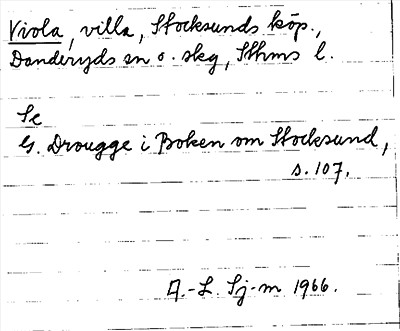 Viola, villa, Stocksunds köp.,
Danderyds sn o. skg, Sthms l.
Se
G. Drougge i Boken om Stocksund,
s. 107.
A.-L. Sj-m 1966.